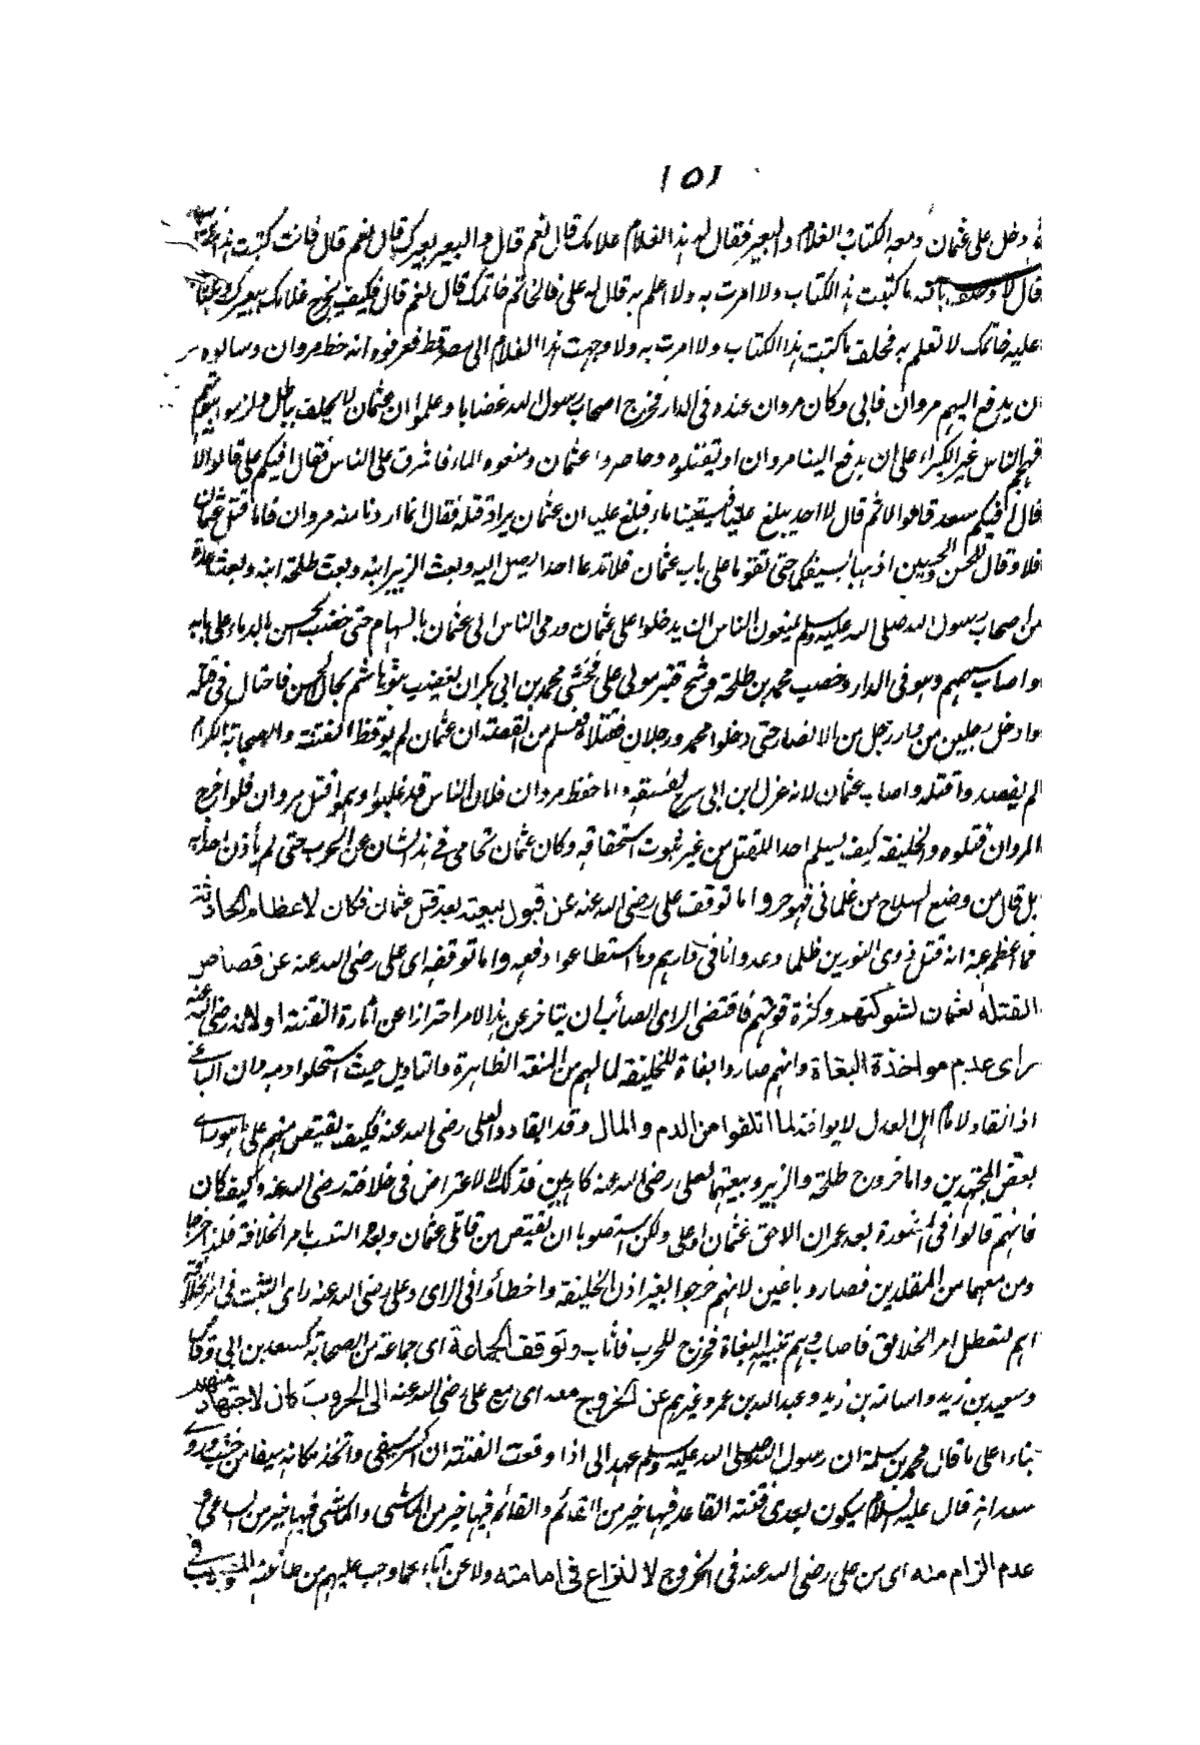 ١٥١
دخل على عثمان ومعه الكتاب والغلام والبعير فقال له هذا الغلام غلامك قال نعم قال والبعير بعيرك قال نعم قال فانت كتبت هذا
قال لا وحلف بالله ما كتبت هذا الكتاب ولا امرت به ولا اعلم به قال له على فالخاتم خاتمك قال نعم قال فكيف يخرج غلامك ببعيرك
عليه خاتمك لا تعلم به فحلف ما كتبت هذا الكتاب ولا امرت به ولا وجهت هذا الغلام الى مصر قط فعرفوه انه خط مروان وسالوه
ان يدفع اليهم مروان فابى وكان مروان عنده فى الدار فخرج اصحاب رسول الله غضابا وعلموا ان عثمان لا يحلف بباطل ولزموا بيوتهم
الناس غير الكبراء على ان يدفع الينا مروان او يقتلوه وحاصروا عثمان ومنعوه الماء فاشرق على الناس فقال افيكم على قالوا لا
قال افيكم سعد قالوا لا ثم قال لا احد يبلغ عليا فيسقينا ماء فبلغ عليا ان عثمان يراد قتله فقال انما اردنا منه مروان فاما قتل عثمان
فلا وقال للحسن والحسين اذهبا بسيفكما حتى تقوما على باب عثمان فلا تدعا احدا يصل اليه وبعث الزبير ابنه وبعث طلحة ابنه وبعث عدة
من اصحاب رسول الله صلى الله عليه وسلم يمنعون الناس ان يدخلوا على عثمان ورمى الناس الى عثمان بالسهام حتى خضب الحسن بالدماء على بابه
واصاب سهم وهو فى الدار وخصب محمد بن طلحة وشج قنبر مولى على فخشى محمد بن ابى بكر ان يغضب بنو هاشم بحال الحسن فاحتال فى قتله
وادخل رجلين من دار رجل من الانصار حتى دخلوا محمد ورجلان فقتلاه فعلم من القصة ان عثمان لم يوقظ الفتنة والصحابة الكرام
لم يقصدوا قتله واصاب عثمان لانه عزل ابن ابى سرح لفسقه واما حفظ مروان فلان الناس قد غلبوا وهموا قتل مروان فلو اخرج
المروان قتلوه والخليفة كيف يسلم احدا للقتل من غير ثبوت استحقاقه وكان عثمان تحامى فى هذا الشان عن الحرب حتى لم ياذن احدا
بل قال من وضع السلاح من غلمانى فهو حر واما توقف على رضى الله عنه عن قبول بيعته بعد قتل عثمان فكان لاعظام الحادثة
فما اعظم عنه انه قتل ذى النورين ظلما وعدوانا فى دارهم وما استطاعوا دفعه واما توقفه اى على رضى الله عنه عن قصاص
القتلة لعثمان لشوكتهم وكثرة قوتهم فاقتضى الراى الصائب ان يتاخر عن هذا الامر احترازا عن اثارة الفتنة او لانه رضى الله عنه
راى عدم مواخذة البغاة وانهم صاروا بغاة للخليفة لما لهم من المنعة الظاهرة والتاويل حيث استحلوا دمه وان الباغى
اذا انقاد لامام اهل العدل لا يواخذ لما اتلفوا من الدم والمال وقد انقادوا لعلى رضى الله عنه فكيف يقتص منهم على ما هو راى
بعض المجتهدين واما خروج طلحة والزبير وبيعتهما لعلى رضى الله عنه كارهين فذلك لا لاعتراض فى خلافة رضى الله عنه وكيف كان
فانهم قالوا فى الشورة بعد عمران الاحق عثمان او على ولكن استصوبا ان يقتص من قاتلى عثمان وبعد التعب بامر الخلافة فلذا خرجا
ومن معهما من المقلدين فصاروا باغين لانهم خرجوا بغير اذن الخليفة واخطأوا فى الراى وعلى رضى الله عنه راى التثبت فى امر الخلافة
اهم لتعطل امر الخلائق فاصاب وهم تنبيه البغاة فخرج للحرب فاثاب وتوقف الجماعة اى جماعة من الصحابة كسعد بن ابى وقاص
وسعيد بن زيد واسامة بن زيد وعبد الله بن عمر وغيرهم عن الخروج معه اى مع على رضى الله عنه الى الحروب كان لاجتهاد منهم
بناء على ما قال محمد بن سلمة ان رسول الله صلى الله عليه وسلم عهد الى اذا وقعت الفتنة ان اكسر سيفى واتخذ مكانه سيفا من خشب وروى
سعد انه قال عليه السلام يكون بعدى فتنة القاعد فيها خير من القائم والقائم فيها خير من الماشى والماشى فيها خير من الساعى
عدم الزام منه اى من على رضى الله عنه فى الخروج لا لنزاع فى امامته ولا عن اباء عما وجب عليهم من طاعته